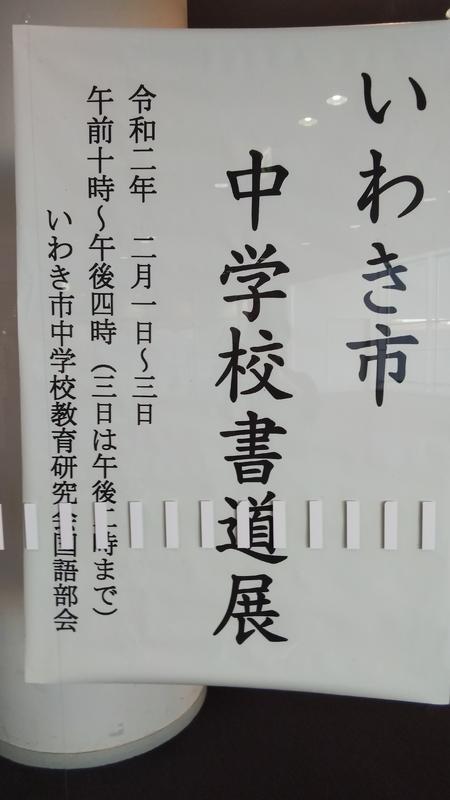 いわき市
中学校書道展
令和二年 二月一日～三日
午前十時～午後四時（三日は午後二時まで）
いわき市中学校教育研究会国語部会